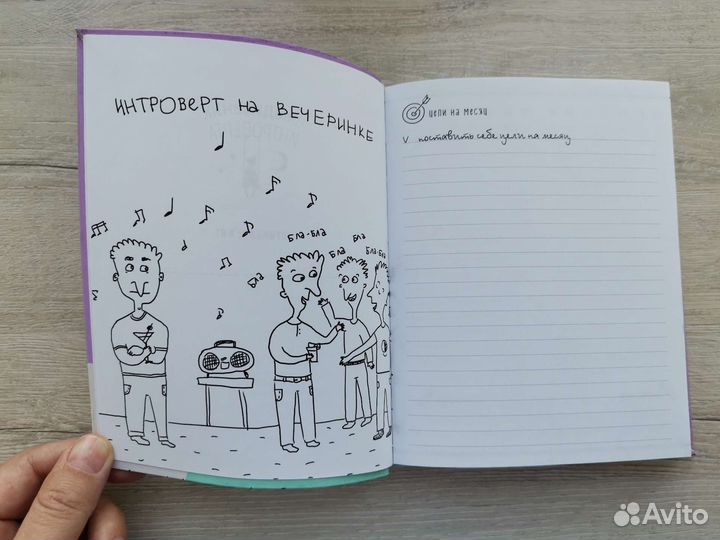 ИНТРОВЕРТ на ВЕЧЕРИНКЕ
бла-бла
бла
бла-бла
бла
бла
цели на месяц
v поставить себе цели на месяц
Avito